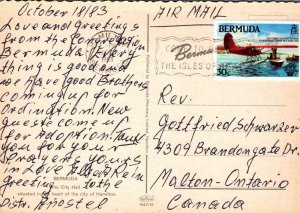 October 18/83
Love and Greetings
from the Congregation
Bermuda. Every
thing is good and
we have Good Brothers
coming up for
Ordination. New
guest come up
for Adoption. and
you for your
Prayers yours
in Love
Greeting to the
Dist. Apostel
BERMUDA
The City Hall
situated in heart of the city of Hamilton.
AIR MAIL
BERMUDA
30c
Bermuda
THE ISLES OF
Rev.
Gottfried Schwarzer
4309 Brandongate Dr.
Malton-Ontario
Canada